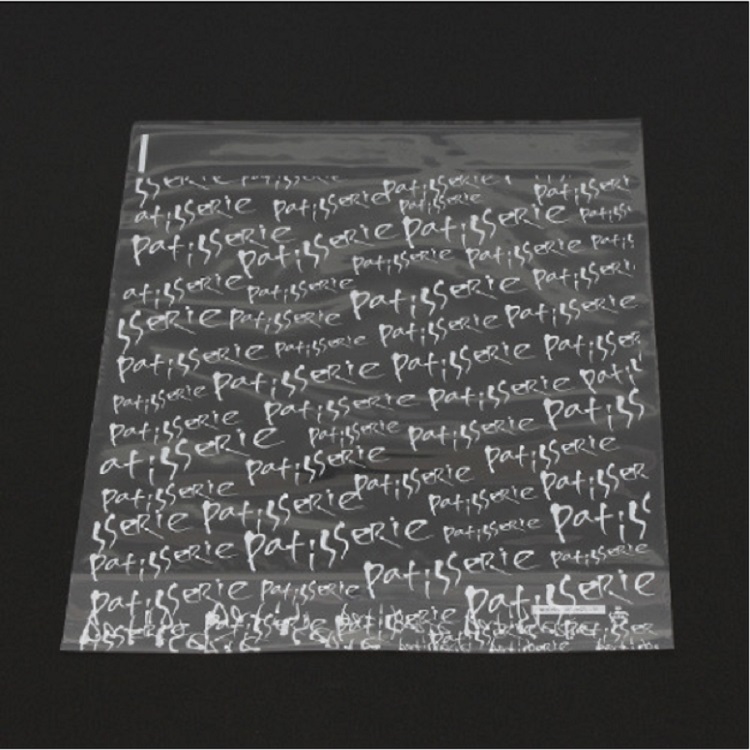 sserie patisserie patisserie patisseri
atisserie patisserie patisserie patissi
patisserie patisserie patisserie
patisserie patisserie patis
atisserie patisserie patisserie patisseri
sserie patisserie patisserie patisserie
patisserie patisserie patisserie patisser
patisserie patisserie patisserie patis
patisserie patisserie patisserie patiss
atisserie patisserie patisserie
patisserie patisserie patisserie patisser
sserie patisserie patisserie patiss
patisserie patisserie patisserie patisserie
patisserie patisserie patisserie